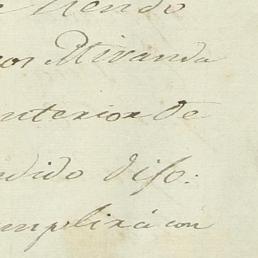 niendo
Miranda
nterior de
dido diso:
umplirá con